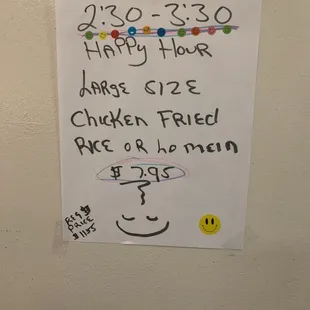 2:30 - 3:30
HAPPY HOUR
LARGE SIZE
CHICKEN FRIED
RICE OR LO MEIN
$ 7.95
REG $
PRICE
$ 11.95